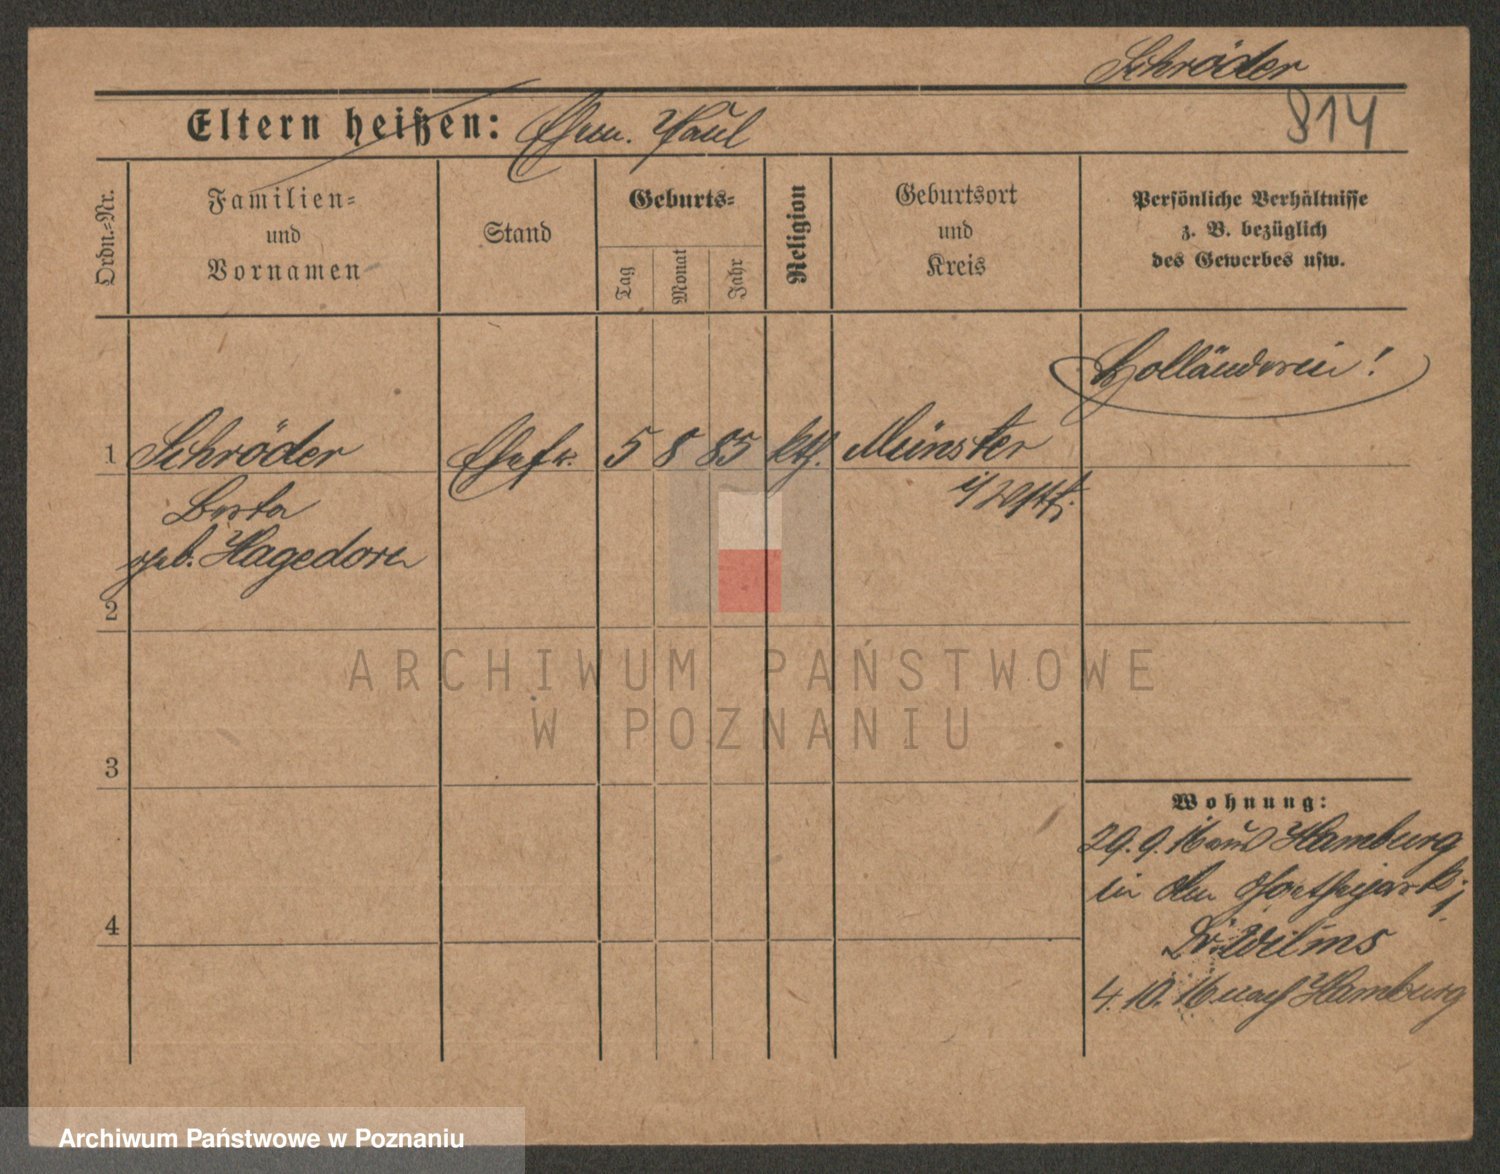 Schröder
814
Eltern heißen: Ehem. Paul
Ordn.-Nr.
Familien-
und
Vornamen
Stand
Geburts-
Tag
Monat
Jahr
Religion
Geburtsort
und
Kreis
Persönliche Verhältnisse
z. B. bezüglich
des Gewerbes usw.
Holländerin!
1 Schröder Ehefr. 5 8 85 kth. Münster
i/Westf.
Berta
geb. Hagedorn
2
3
4
Wohnung:
29.9.16 aus Hamburg
in den Goethepark
Dr. Wilms
4.10.16 nach Hamburg
ARCHIWUM PAŃSTWOWE
W POZNANIU
Archiwum Państwowe w Poznaniu